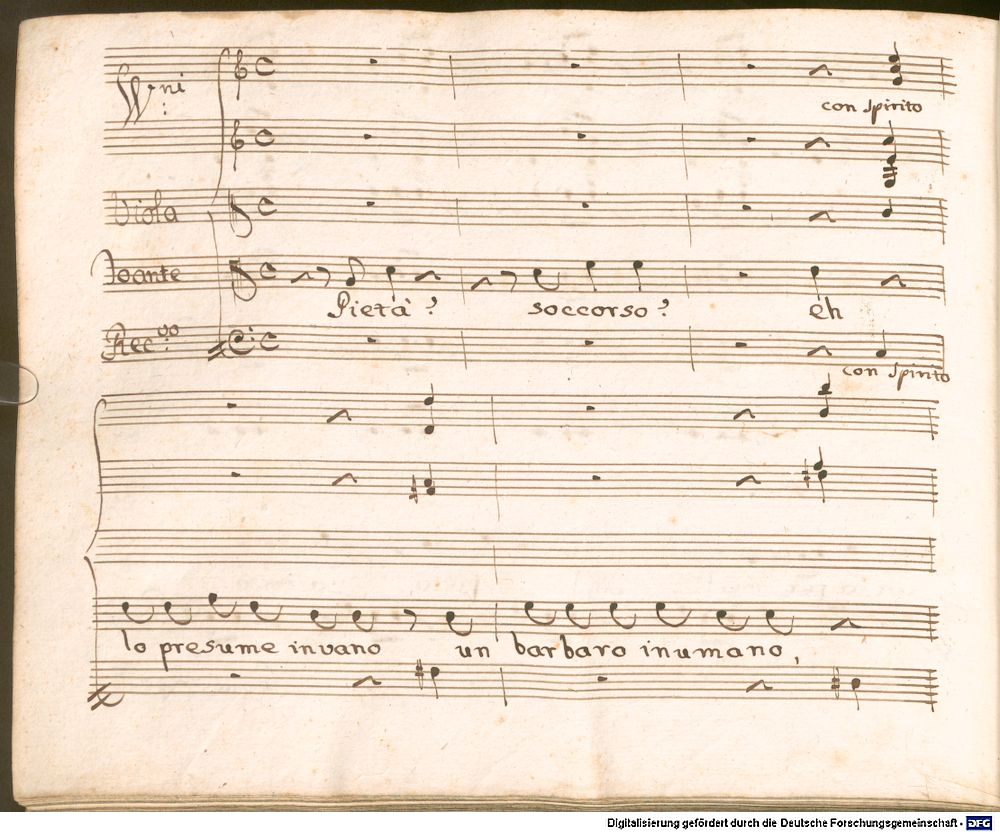 VVni
con spirito
Viola
Toante
Pietà? soccorso? eh
Rec:vo
con spirito
lo presume invano un barbaro inumano,
Digitalisierung gefördert durch die Deutsche Forschungsgemeinschaft - DFG